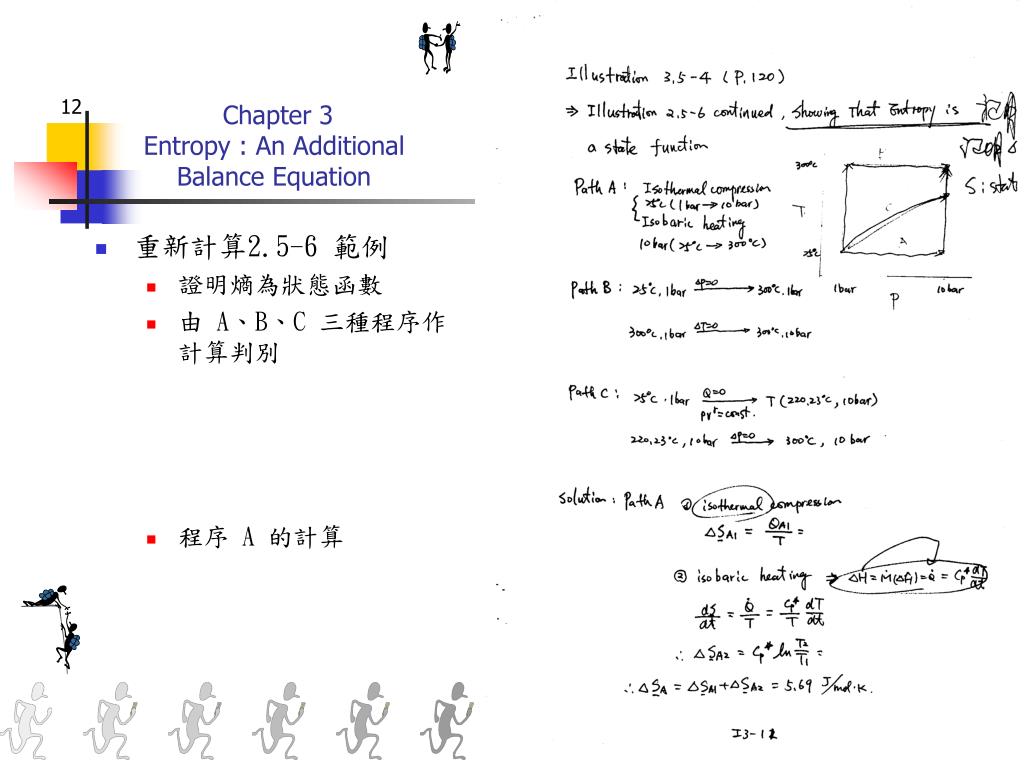 12
Chapter 3
Entropy : An Additional
Balance Equation
重新計算2.5-6 範例
證明熵為狀態函數
由 A、B、C 三種程序作
計算判別
程序 A 的計算
Illustration 3.5-4 (P.120)
⇒ Illustration 2.5-6 continued, showing That Entropy is
a state function
Path A : Isothermal compression
25℃ (1bar → 10bar)
Isobaric heating
10bar (25℃ → 300℃)
300℃
T
25℃
B
C
A
1bar
10bar
P
S : stat
Path B : 25℃, 1bar ΔP=0 → 300℃, 1bar
300℃, 1bar ΔT=0 → 300℃, 10bar
Path C : 25℃, 1bar Q=0 → T (220.23℃, 10bar)
PVʳ=const.
220.23℃, 10bar ΔP=0 → 300℃, 10 bar
Solution : Path A ① isothermal compression
ΔS_A1 = Q_A1/T =
② isobaric heating ⇒ ΔH = Ṁ(ΔĤ) = Q̇ = Cp* dT/dt
dS/dt = Q̇/T = Cp*/T dT/dt
∴ ΔS_A2 = Cp* ln T2/T1 =
∴ ΔS_A = ΔS_A1 + ΔS_A2 = 5.69 J/mol·K.
I3-12